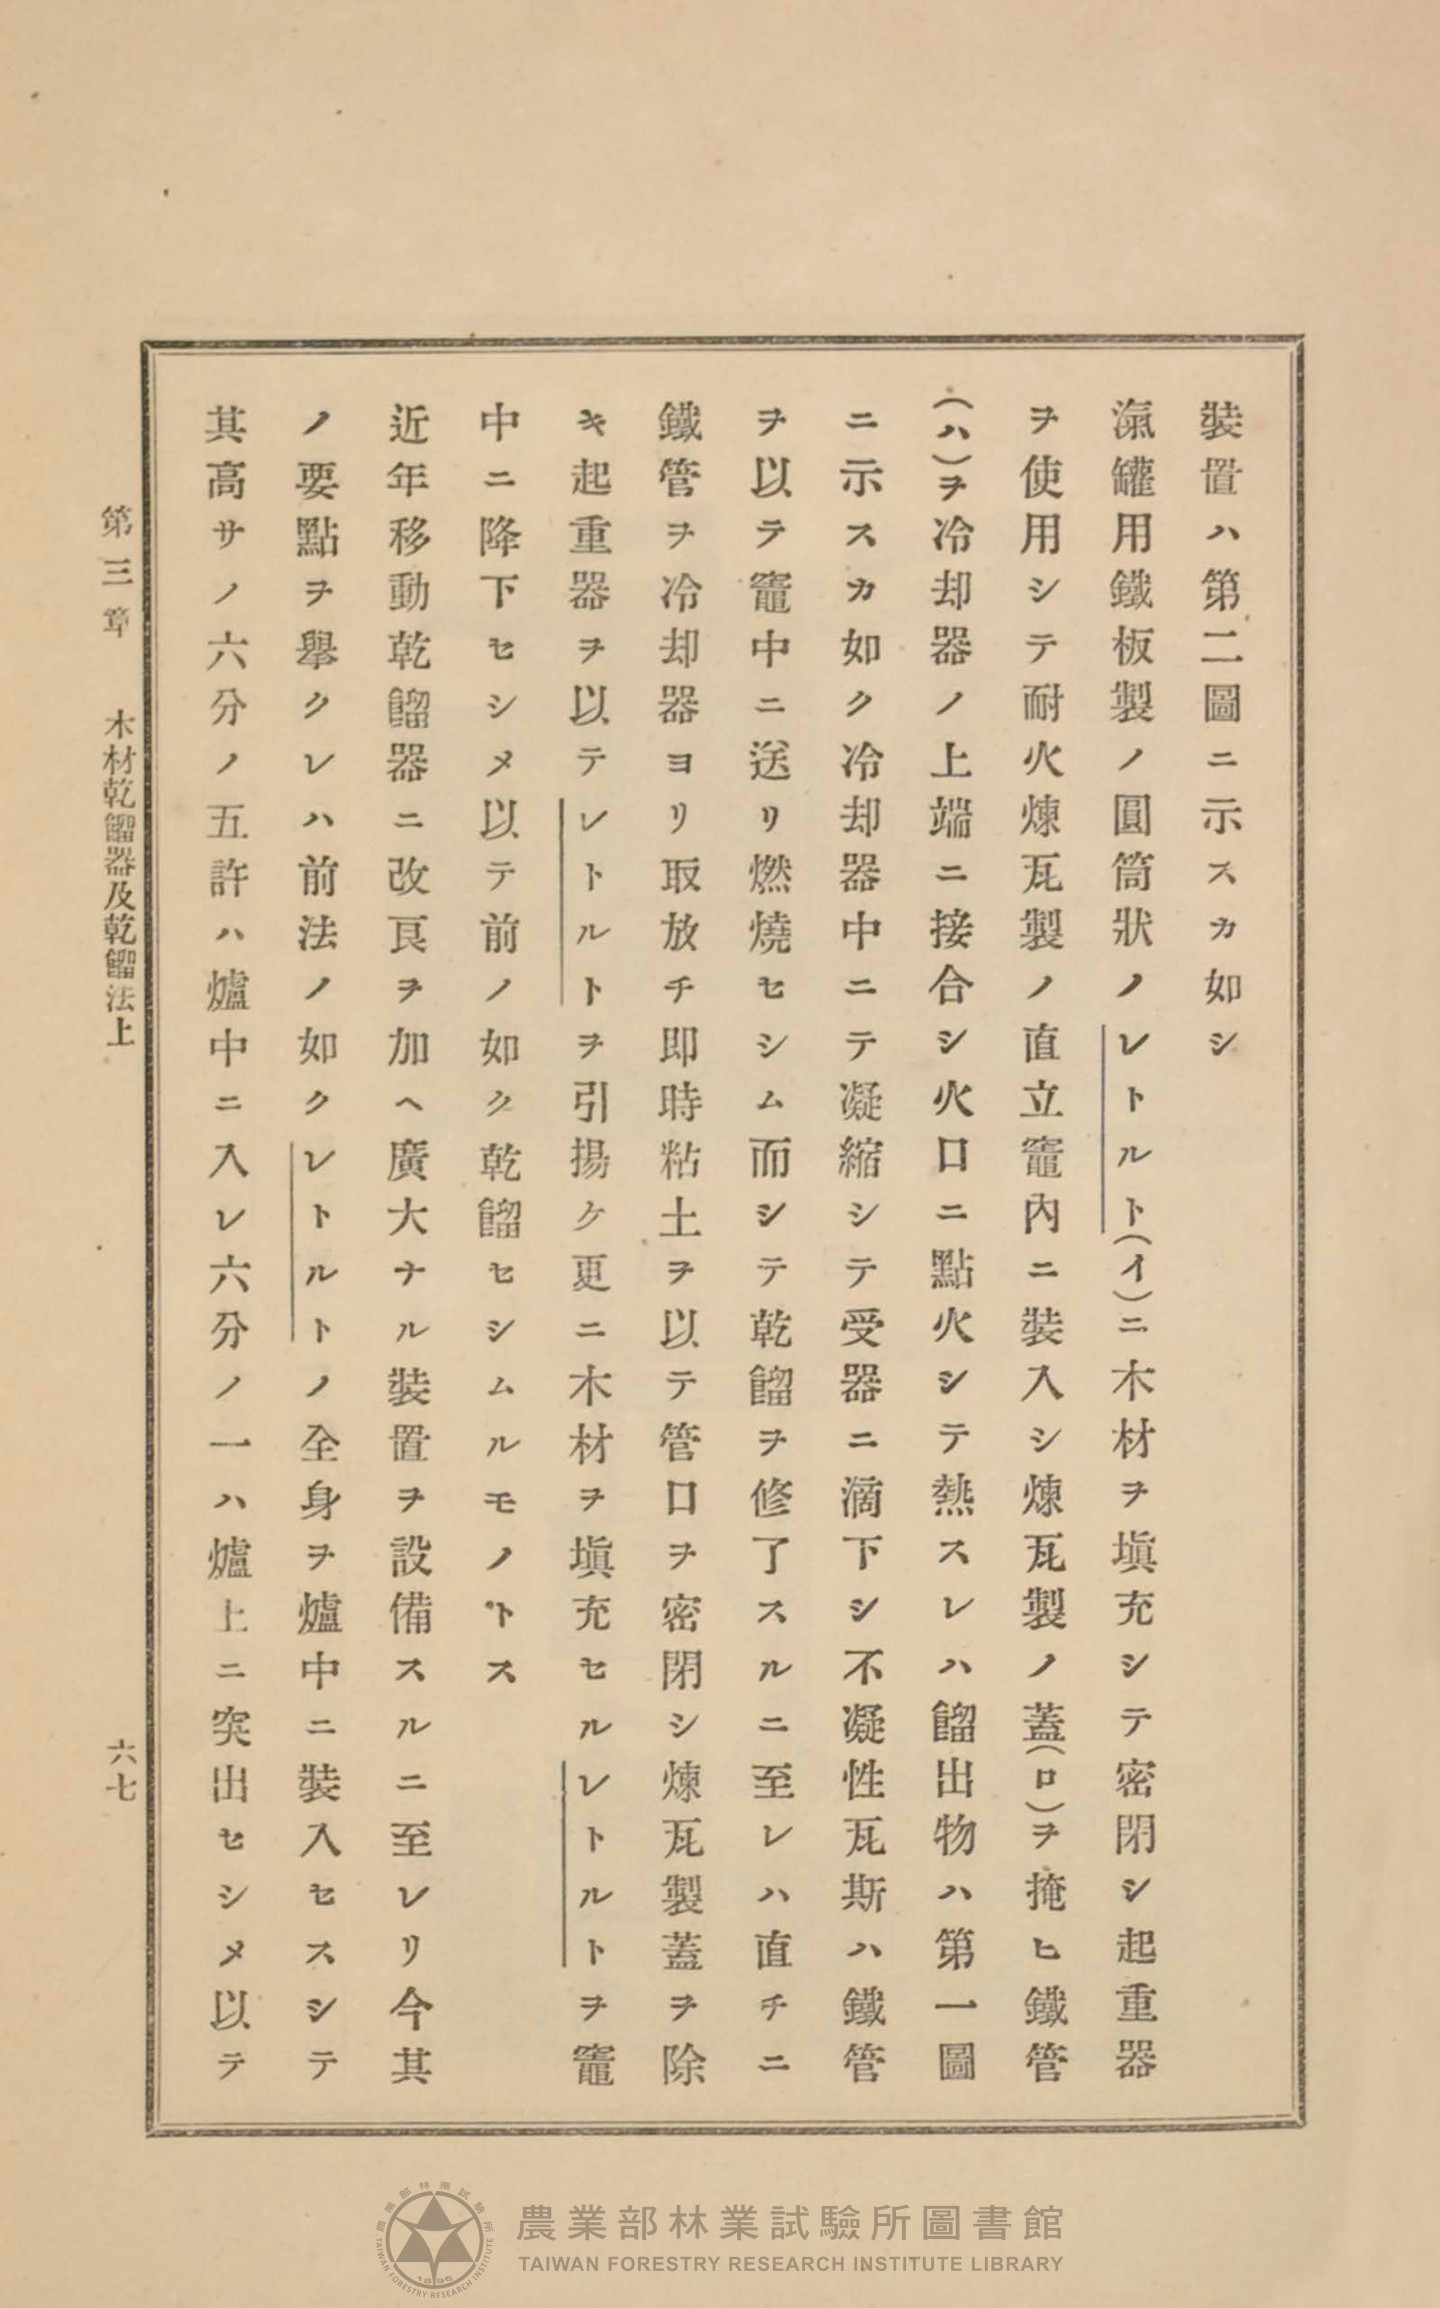 裝置ハ第二圖ニ示スカ如シ
滊罐用鐵板製ノ圓筒狀ノレトルト(イ)ニ木材ヲ塡充シテ密閉シ起重器
ヲ使用シテ耐火煉瓦製ノ直立竈內ニ裝入シ煉瓦製ノ蓋(ロ)ヲ掩ヒ鐵管
(ハ)ヲ冷却器ノ上端ニ接合シ火口ニ點火シテ熱スレハ餾出物ハ第一圖
ニ示スカ如ク冷却器中ニテ凝縮シテ受器ニ滴下シ不凝性瓦斯ハ鐵管
ヲ以テ竈中ニ送リ燃燒セシム而シテ乾餾ヲ修了スルニ至レハ直チニ
鐵管ヲ冷却器ヨリ取放チ即時粘土ヲ以テ管口ヲ密閉シ煉瓦製蓋ヲ除
キ起重器ヲ以テレトルトヲ引揚ケ更ニ木材ヲ塡充セルレトルトヲ竈
中ニ降下セシメ以テ前ノ如ク乾餾セシムルモノトス
近年移動乾餾器ニ改良ヲ加ヘ廣大ナル裝置ヲ設備スルニ至レリ今其
ノ要點ヲ擧クレハ前法ノ如クレトルトノ全身ヲ爐中ニ裝入セスシテ
其高サノ六分ノ五許ハ爐中ニ入レ六分ノ一ハ爐上ニ突出セシメ以テ
第三章 木材乾餾器及乾餾法上 六七
農業部林業試驗所圖書館
TAIWAN FORESTRY RESEARCH INSTITUTE LIBRARY
農業部林業試驗所
TAIWAN FORESTRY RESEARCH INSTITUTE
1896